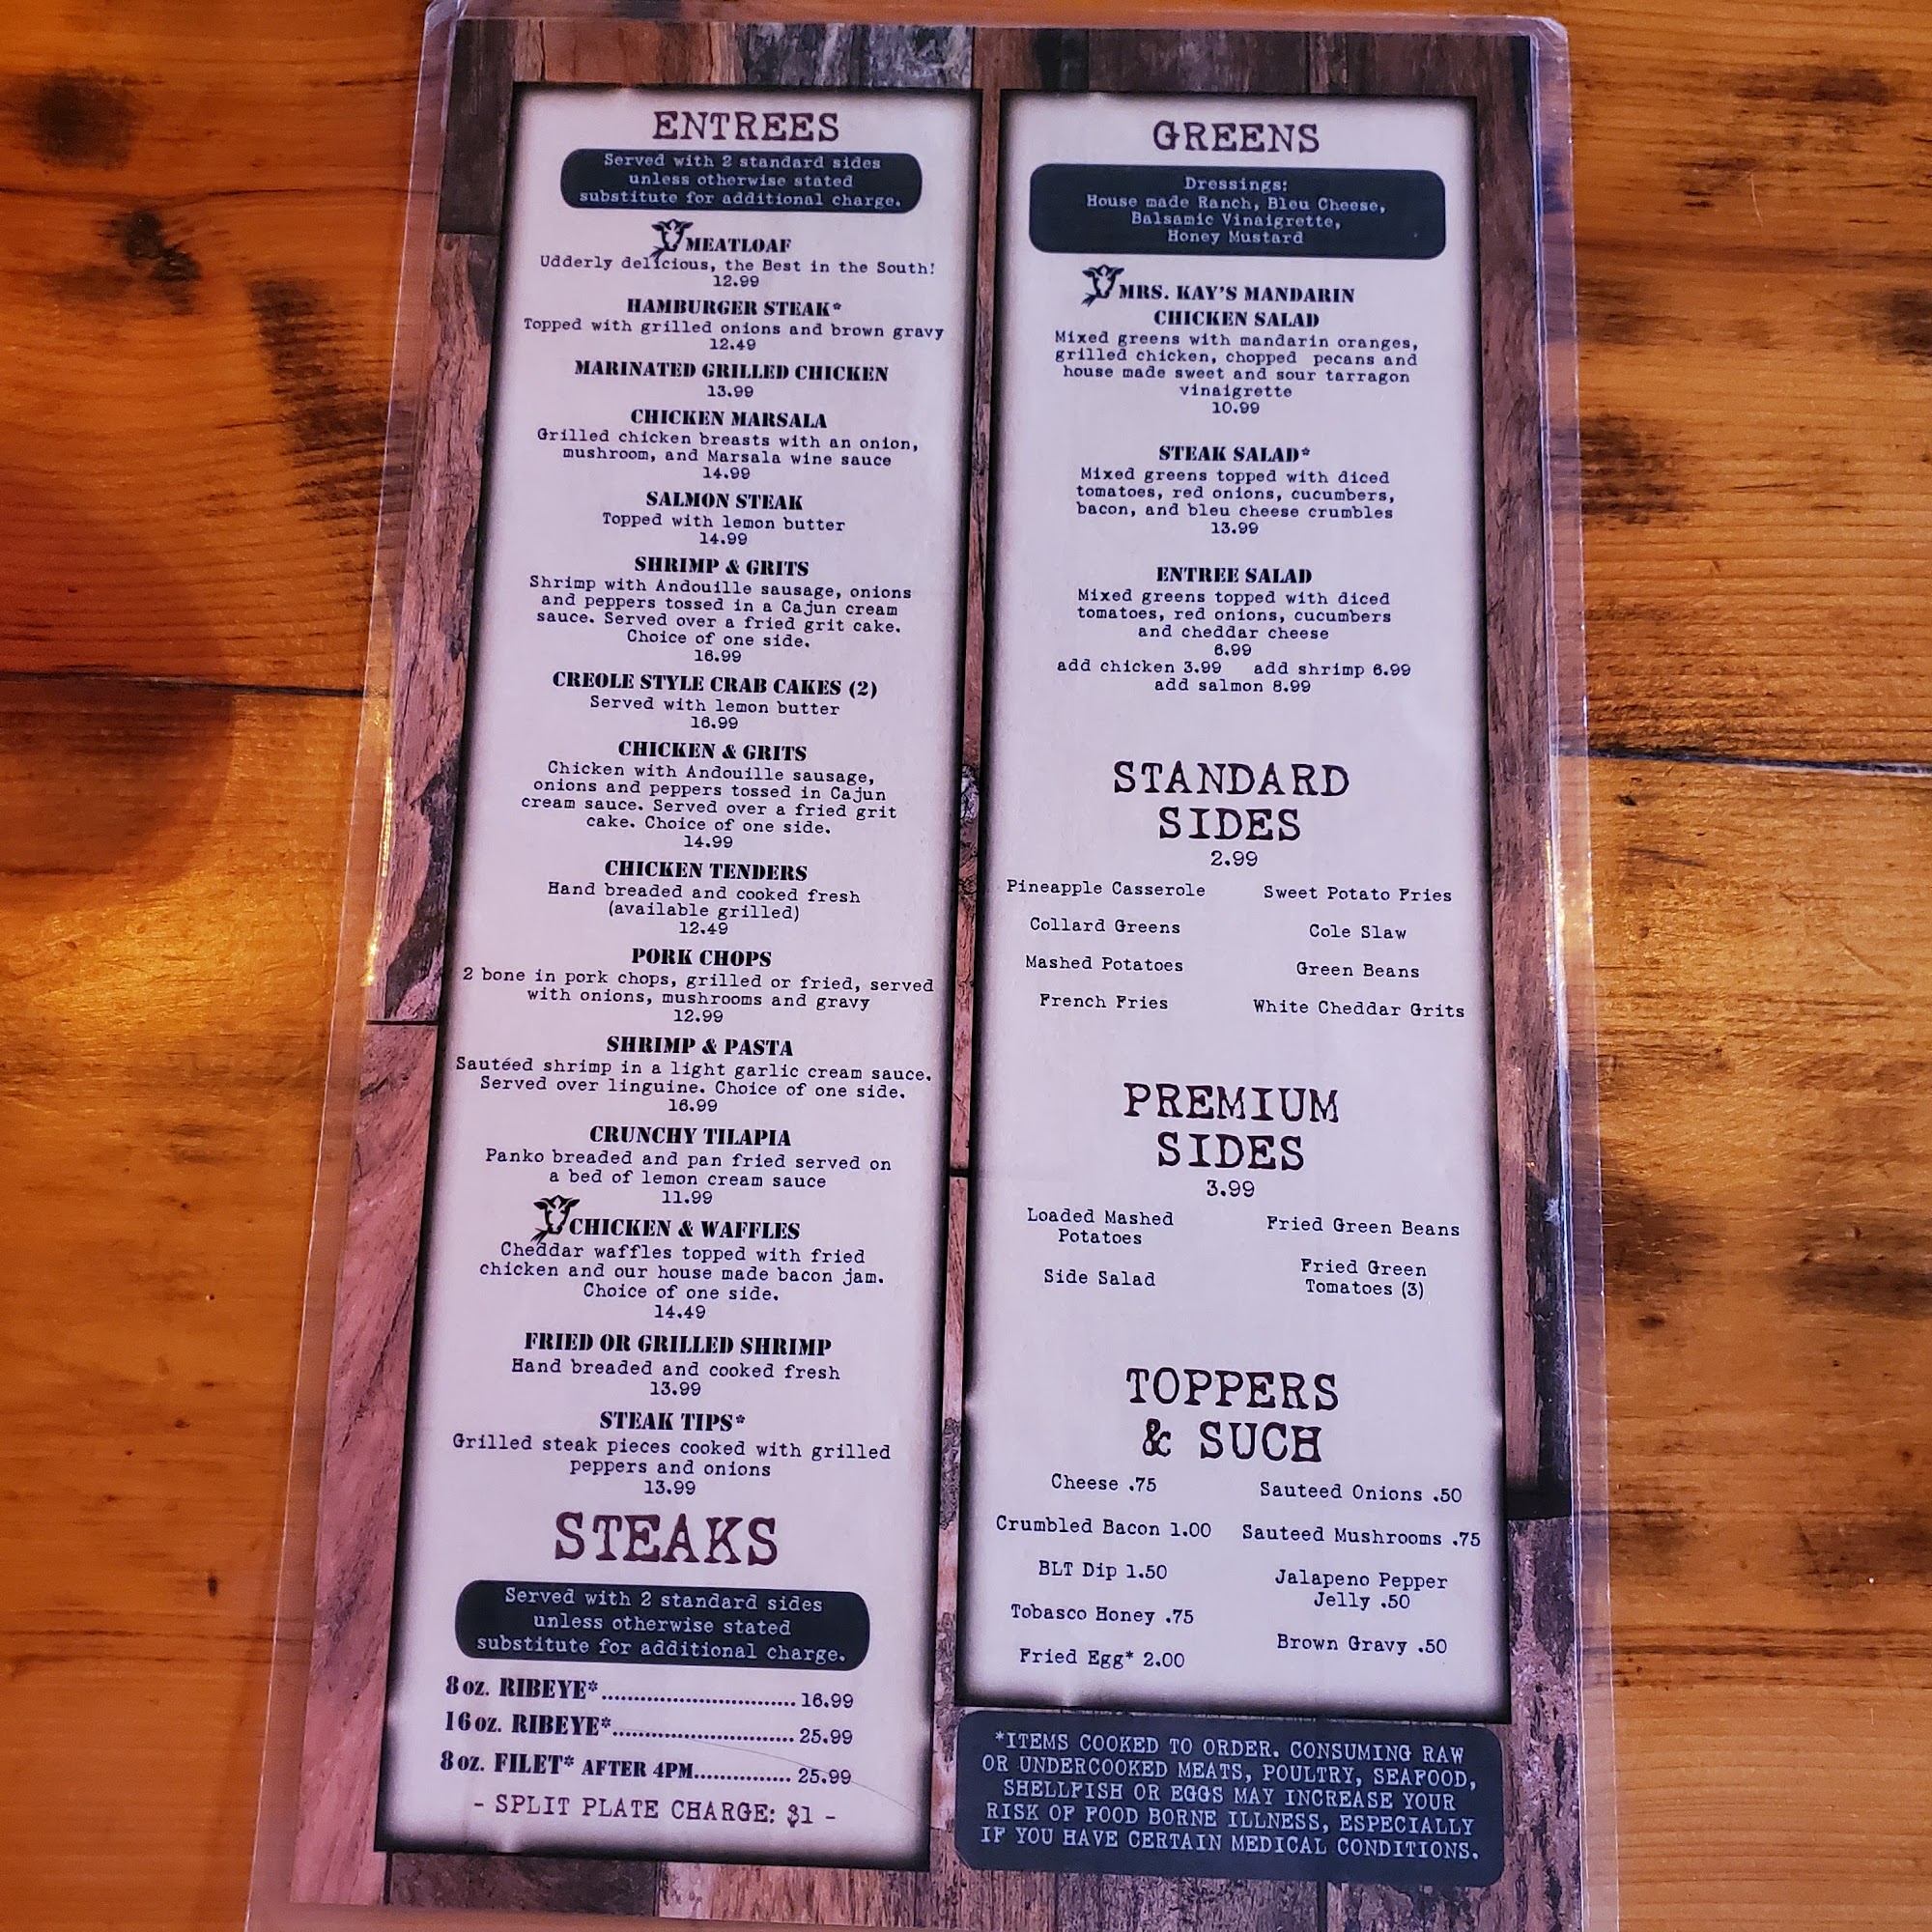 ENTREES
Served with 2 standard sides
unless otherwise stated
substitute for additional charge.
MEATLOAF
Udderly delicious, the Best in the South!
12.99
HAMBURGER STEAK*
Topped with grilled onions and brown gravy
12.49
MARINATED GRILLED CHICKEN
13.99
CHICKEN MARSALA
Grilled chicken breasts with an onion,
mushroom, and Marsala wine sauce
14.99
SALMON STEAK
Topped with lemon butter
14.99
SHRIMP & GRITS
Shrimp with Andouille sausage, onions
and peppers tossed in a Cajun cream
sauce. Served over a fried grit cake.
Choice of one side.
16.99
CREOLE STYLE CRAB CAKES (2)
Served with lemon butter
16.99
CHICKEN & GRITS
Chicken with Andouille sausage,
onions and peppers tossed in Cajun
cream sauce. Served over a fried grit
cake. Choice of one side.
14.99
CHICKEN TENDERS
Hand breaded and cooked fresh
(available grilled)
12.49
PORK CHOPS
2 bone in pork chops, grilled or fried, served
with onions, mushrooms and gravy
12.99
SHRIMP & PASTA
Sautéed shrimp in a light garlic cream sauce.
Served over linguine. Choice of one side.
16.99
CRUNCHY TILAPIA
Panko breaded and pan fried served on
a bed of lemon cream sauce
11.99
CHICKEN & WAFFLES
Cheddar waffles topped with fried
chicken and our house made bacon jam.
Choice of one side.
14.49
FRIED OR GRILLED SHRIMP
Hand breaded and cooked fresh
13.99
STEAK TIPS*
Grilled steak pieces cooked with grilled
peppers and onions
13.99
STEAKS
Served with 2 standard sides
unless otherwise stated
substitute for additional charge.
8 oz. RIBEYE*.............................. 16.99
16 oz. RIBEYE*............................ 25.99
8 oz. FILET* AFTER 4PM............... 25.99
- SPLIT PLATE CHARGE: $1 -
GREENS
Dressings:
House made Ranch, Bleu Cheese,
Balsamic Vinaigrette,
Honey Mustard
MRS. KAY'S MANDARIN
CHICKEN SALAD
Mixed greens with mandarin oranges,
grilled chicken, chopped pecans and
house made sweet and sour tarragon
vinaigrette
10.99
STEAK SALAD*
Mixed greens topped with diced
tomatoes, red onions, cucumbers,
bacon, and bleu cheese crumbles
13.99
ENTREE SALAD
Mixed greens topped with diced
tomatoes, red onions, cucumbers
and cheddar cheese
6.99
add chicken 3.99 add shrimp 6.99
add salmon 8.99
STANDARD
SIDES
2.99
Pineapple Casserole Sweet Potato Fries
Collard Greens Cole Slaw
Mashed Potatoes Green Beans
French Fries White Cheddar Grits
PREMIUM
SIDES
3.99
Loaded Mashed
Potatoes
Fried Green Beans
Side Salad
Fried Green
Tomatoes (3)
TOPPERS
& SUCH
Cheese .75 Sauteed Onions .50
Crumbled Bacon 1.00 Sauteed Mushrooms .75
BLT Dip 1.50
Jalapeno Pepper
Jelly .50
Tobasco Honey .75
Brown Gravy .50
Fried Egg* 2.00
*ITEMS COOKED TO ORDER. CONSUMING RAW
OR UNDERCOOKED MEATS, POULTRY, SEAFOOD,
SHELLFISH OR EGGS MAY INCREASE YOUR
RISK OF FOOD BORNE ILLNESS, ESPECIALLY
IF YOU HAVE CERTAIN MEDICAL CONDITIONS.